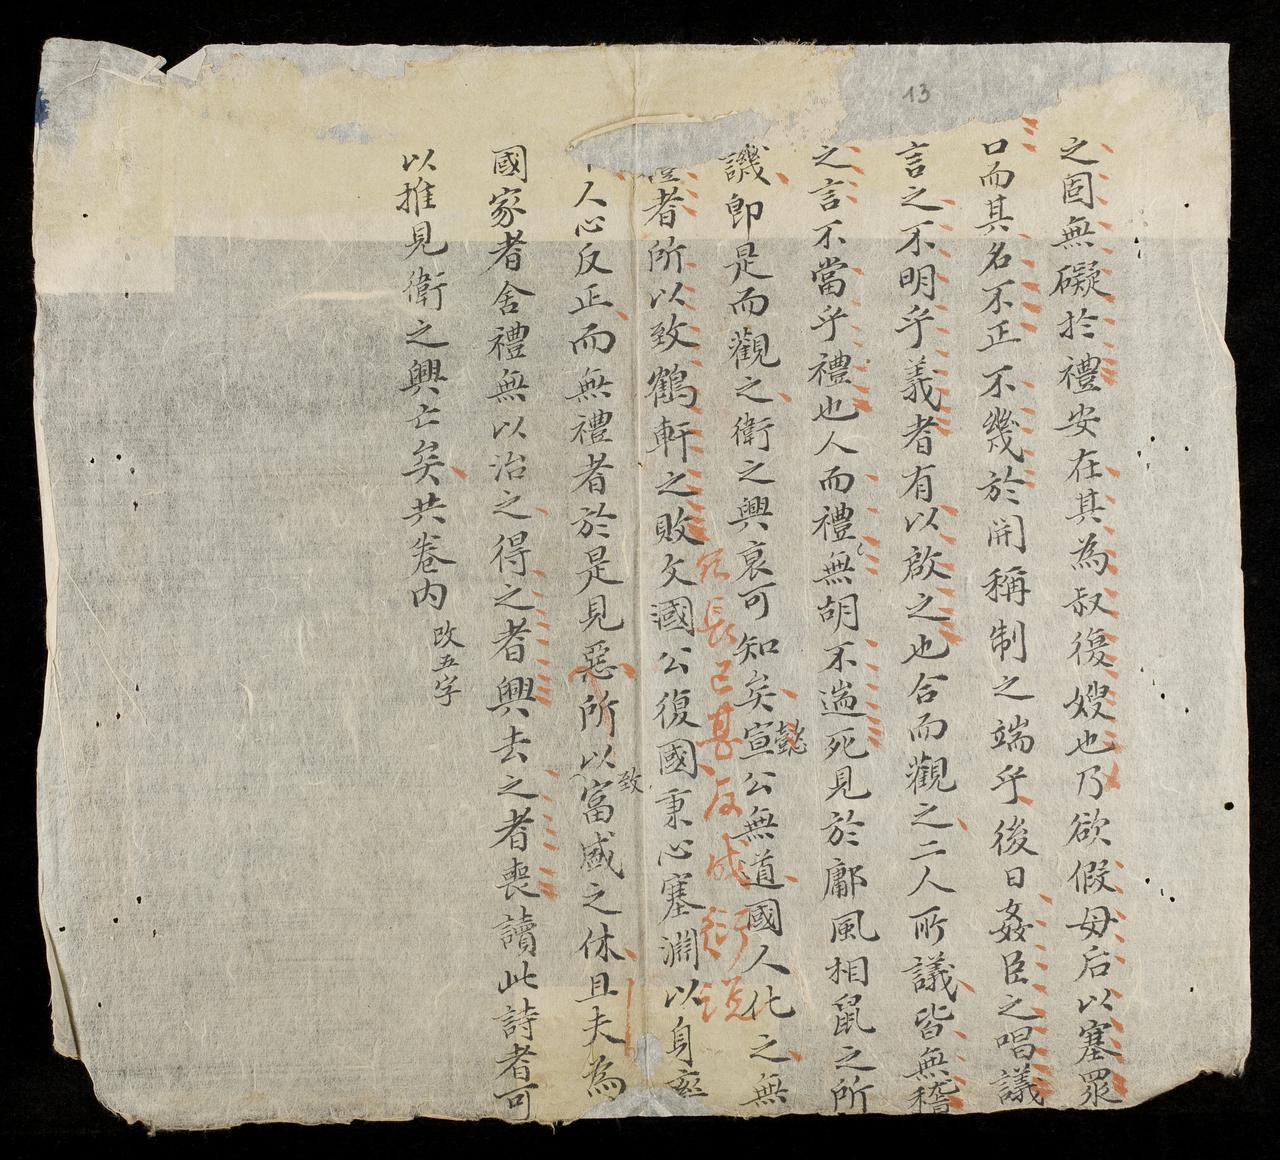 13
之固無礙於禮安在其為叔復嫂也乃欲假母后以塞眾
口而其名不正不幾於開稱制之端乎後日姦臣之唱議
言之不明乎義者有以啟之也合而觀之二人所議皆無稽
之言不當乎禮也人而禮無胡不遄死見於鄘風相鼠之所
譏即是而觀之衛之興衰可知矣宣公無道國人化之無
懿
冗長已甚反成衍說
者所以致鶴軒之敗文國公復國秉心塞淵以身
人心反正而無禮者於是見惡所以富盛之休且夫為
致
國家者舍禮無以治之得之者興去之者喪讀此詩者可
以推見衛之興亡矣共卷內
改五字